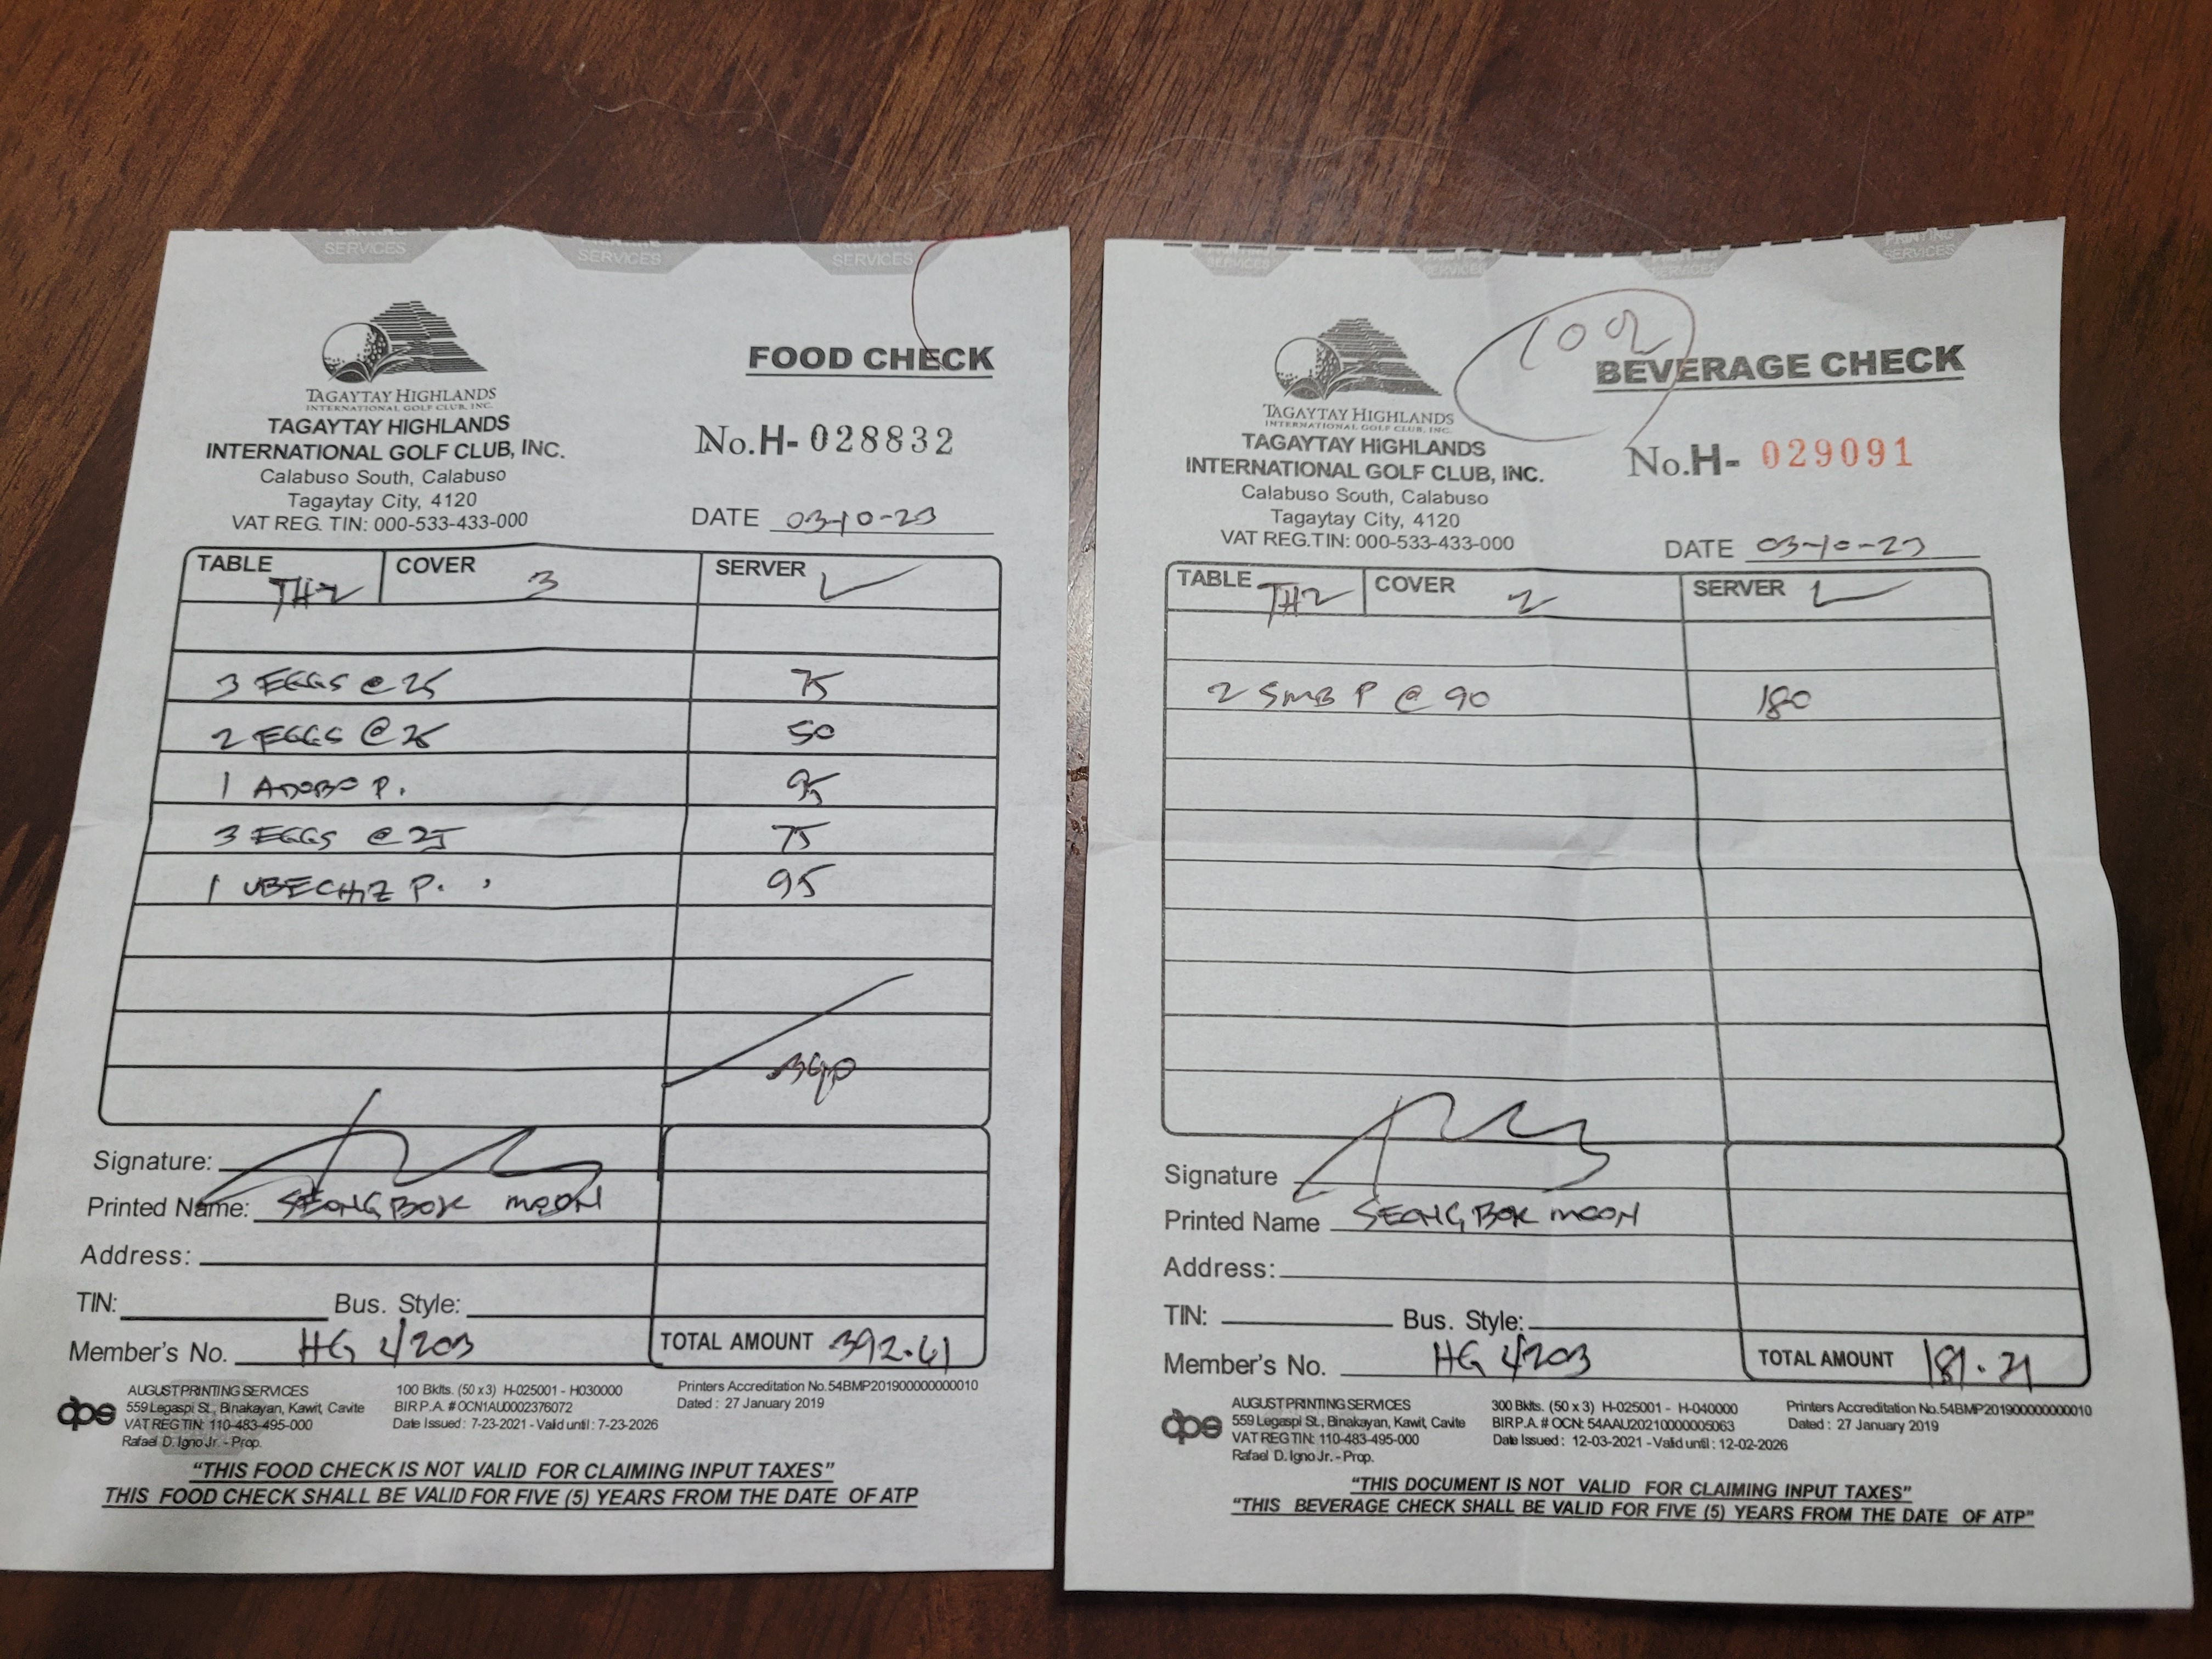 SERVICES
SERVICES
SERVICES
TAGAYTAY HIGHLANDS
INTERNATIONAL GOLF CLUB, INC.
TAGAYTAY HIGHLANDS
INTERNATIONAL GOLF CLUB, INC.
Calabuso South, Calabuso
Tagaytay City, 4120
VAT REG. TIN: 000-533-433-000
FOOD CHECK
No.H- 028832
DATE 03-10-23
TABLE TH2 COVER 3 SERVER
3 EGGS @ 25 75
2 EGGS @ 25 50
1 ADOBO P. 95
3 EGGS @ 25 75
1 UBECHIZ P. 95
390
Signature:
Printed Name: SEONG BOK MOON
Address:
TIN: Bus. Style:
Member's No. HG 4203
TOTAL AMOUNT 392.61
AUGUST PRINTING SERVICES
559 Legaspi St., Binakayan, Kawit, Cavite
VAT REG TIN: 110-483-495-000
Rafael D. Igno Jr. - Prop.
100 Bklts. (50 x 3) H-025001 - H030000
BIR P.A. # OCN1AU0002376072
Date Issued : 7-23-2021 - Valid until : 7-23-2026
Printers Accreditation No.54BMP201900000000010
Dated : 27 January 2019
"THIS FOOD CHECK IS NOT VALID FOR CLAIMING INPUT TAXES"
THIS FOOD CHECK SHALL BE VALID FOR FIVE (5) YEARS FROM THE DATE OF ATP
SERVICES
SERVICES
SERVICES
PRINTING
SERVICES
TAGAYTAY HIGHLANDS
INTERNATIONAL GOLF CLUB, INC.
TAGAYTAY HIGHLANDS
INTERNATIONAL GOLF CLUB, INC.
Calabuso South, Calabuso
Tagaytay City, 4120
VAT REG.TIN: 000-533-433-000
BEVERAGE CHECK
No.H- 029091
DATE 03-10-23
TABLE TH2 COVER 2 SERVER
2 SMB P @ 90 180
Signature
Printed Name SEONG BOK MOON
Address:
TIN: Bus. Style:
Member's No. HG 4203
TOTAL AMOUNT 181.21
AUGUST PRINTING SERVICES
559 Legaspi St., Binakayan, Kawit, Cavite
VAT REG TIN: 110-483-495-000
Rafael D. Igno Jr. - Prop.
300 Bklts. (50 x 3) H-025001 - H-040000
BIR P.A. # OCN: 54AAU20210000005063
Date Issued : 12-03-2021 - Valid until : 12-02-2026
Printers Accreditation No.54BMP201900000000010
Dated : 27 January 2019
"THIS DOCUMENT IS NOT VALID FOR CLAIMING INPUT TAXES"
"THIS BEVERAGE CHECK SHALL BE VALID FOR FIVE (5) YEARS FROM THE DATE OF ATP"